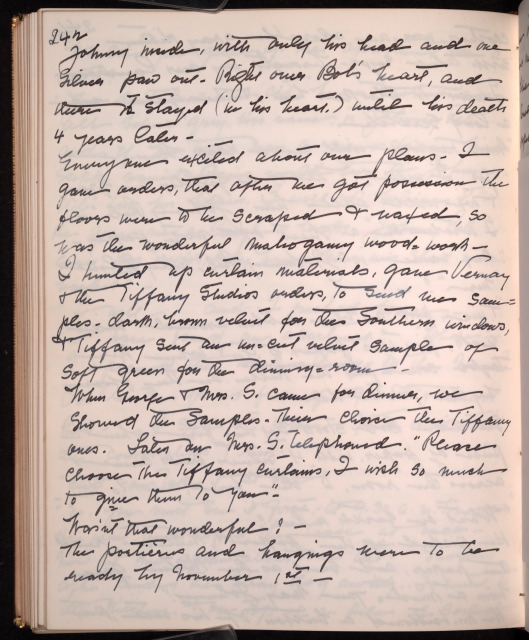 242
Johnny inside, with only his head and one
silver paw out. Right over Bob's heart, and
there it stayed (in his heart.) until his death
4 years later -
Everyone excited about our plans - I
gave orders, that after we got possession the
floors were to be scraped & waxed, so
was the wonderful mahogamy wood-work -
I hunted up curtain materials, gave Vernay
& the Tiffany Studios orders, to send me sam=
ples - dark, brown velvet for the Southern windows,
& Tiffany sent an un-cut velvet sample of
soft green for the dining=room. -
When George & Mrs. S. came for dinner, we
showed the samples. Their choice the Tiffany
ones. Later on Mrs. S. telephoned. "Please
choose the Tiffany curtains, I wish so much
to give them to you"-
Wasn't that wonderful! -
The portieres and hangings were to be
ready by November 1st -